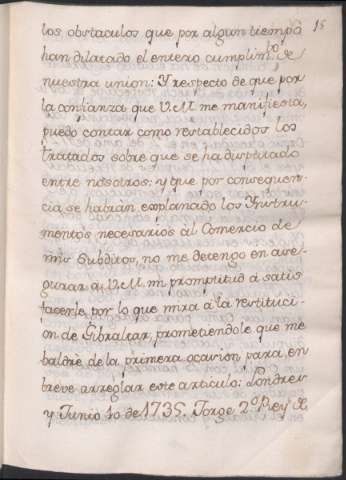 15
los obstaculos que por algun tiempo
han dilatado el entero cumplim.to de
nuestra union: Y respecto de que por
la confianza que V.M. me manifiesta,
puedo contar como restablecidos los
tratados sobre que se ha disputado
entre nosotros; y que por consequen-
cia se habràn explanado los Instru-
mentos necesarios al Comercio de
mis Subditos, no me detengo en ase-
gurar a V.M. mi promptitud à satis-
facerle, por lo que mira à la restituci-
on de Gibraltar, prometiendole que me
baldrè de la primera ocasion para, en
breve arreglar este articulo: Londres
y Junio 10 de 1735. Jorge 2.o Rey